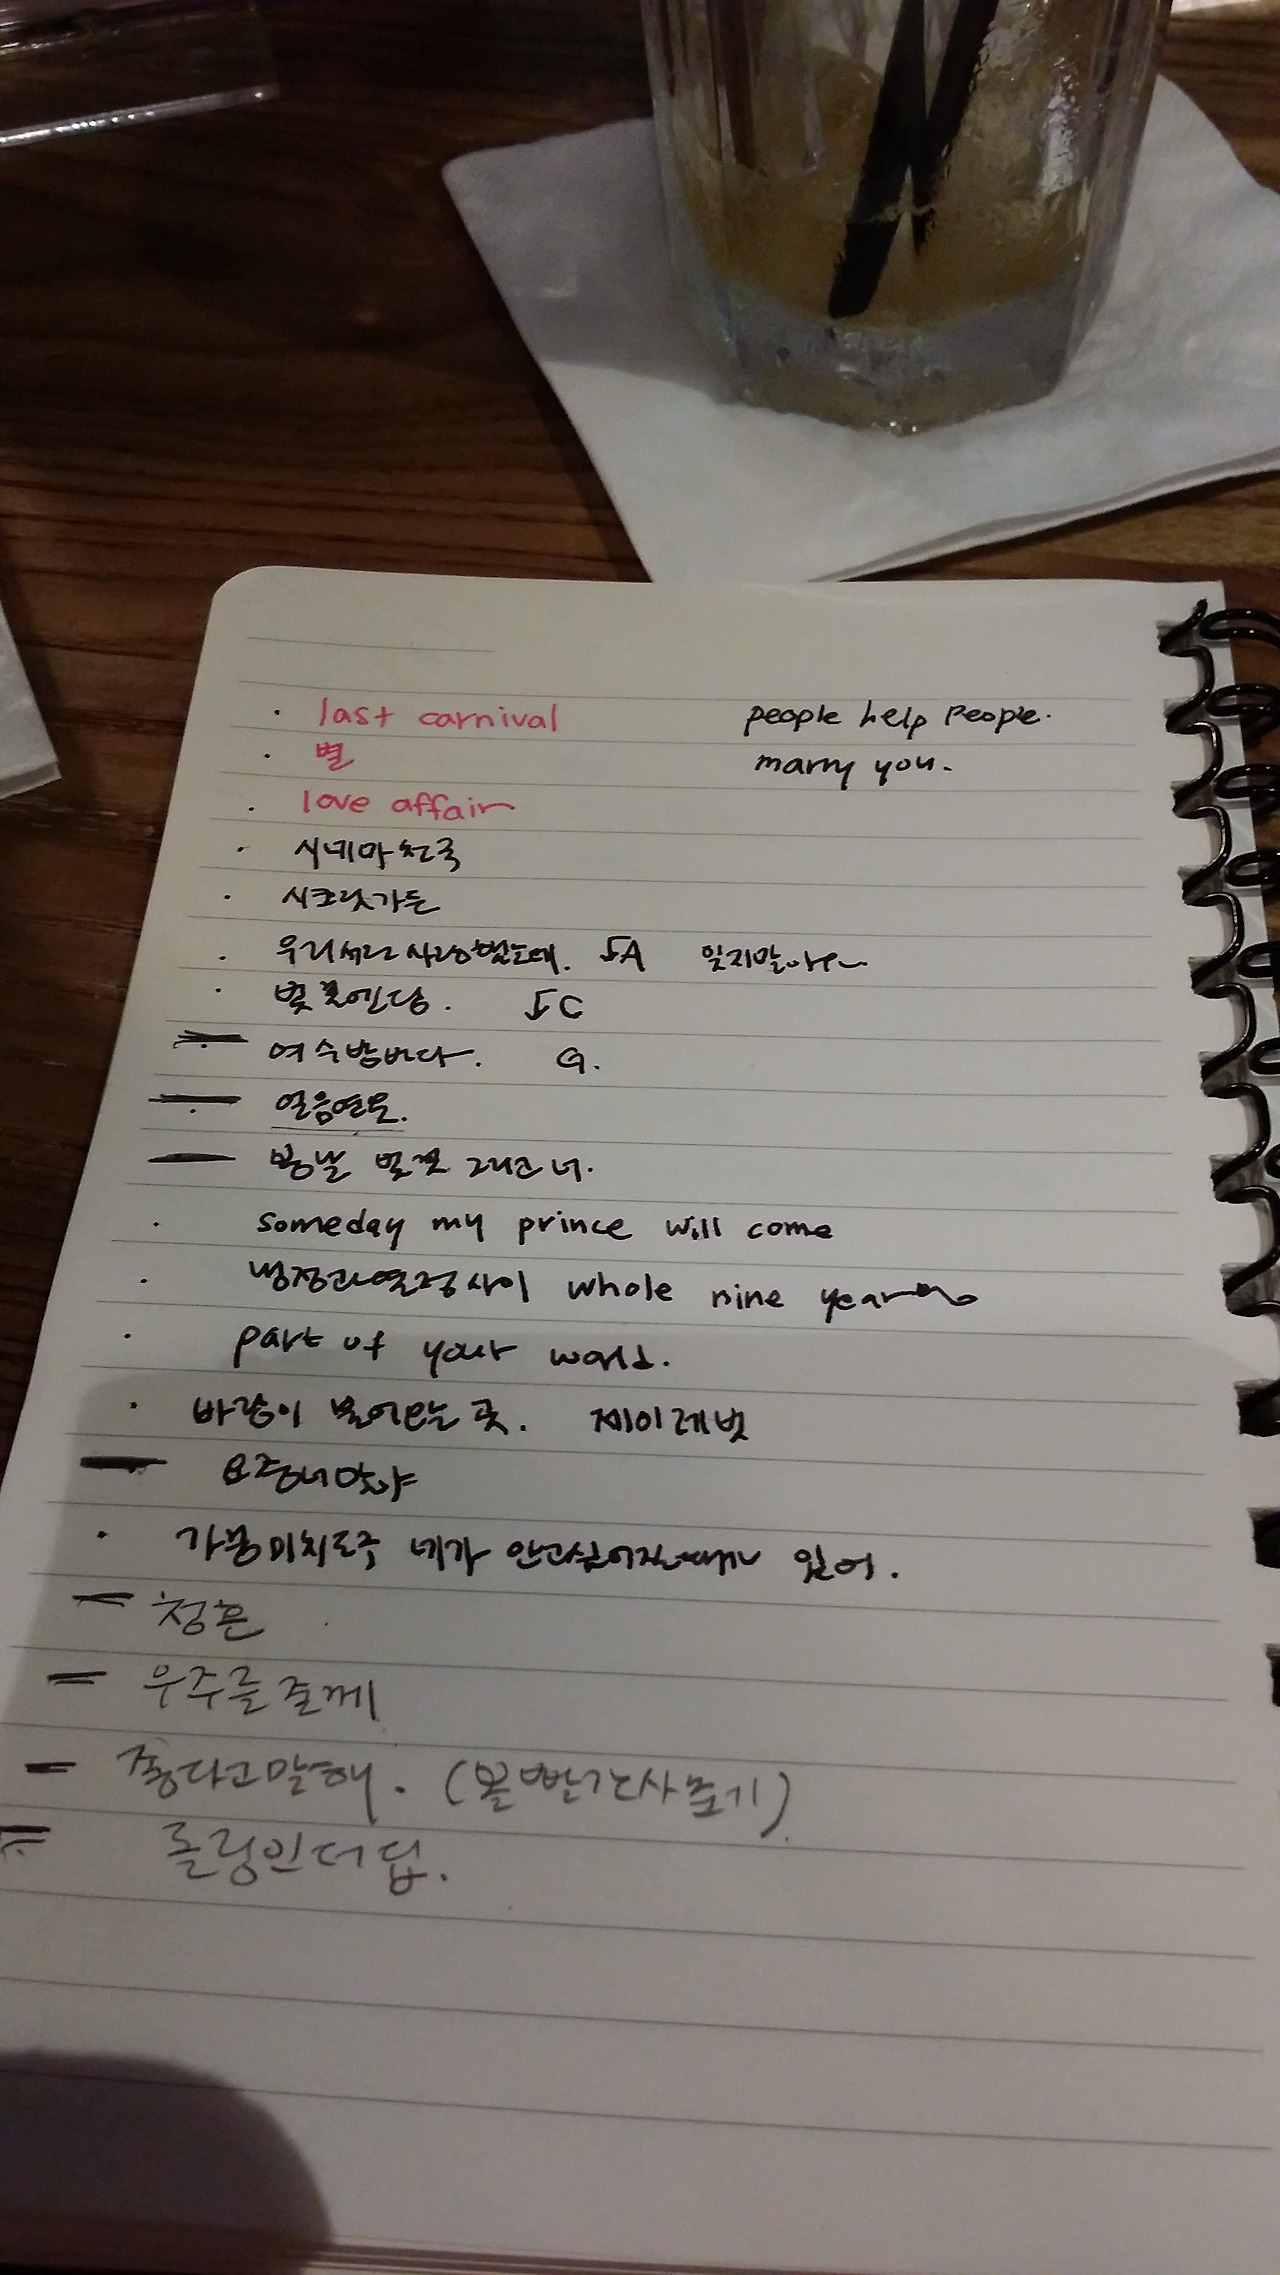 · last carnival people help people.
· 별 marry you.
· love affair
· 시네마천국
· 시크릿가든
· 우리서로사랑했는데. ↓A 잊지말아요~
· 벚꽃엔딩. ↓C
여수밤바다. G.
얼음연못.
봄날 벚꽃 그리고 너.
· someday my prince will come
· 냉정과열정사이 whole nine year
· part of your world.
· 바람이 불어오는 곳. 제이레빗
요즘너말야
· 가끔미치도록 네가 안고싶어질때가 있어.
청춘
우주를줄게
좋다고말해. (볼빨간사춘기)
롤링인더딥.